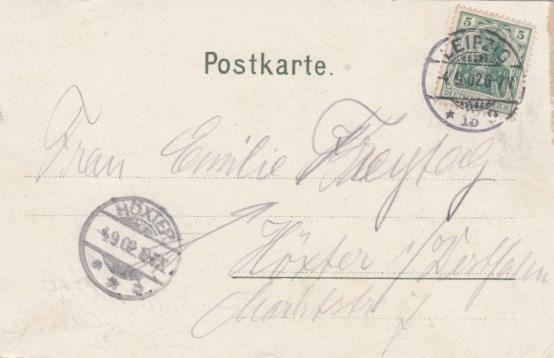 Postkarte.
5 5
DEUTSCHES REICH
LEIPZIG
4.9.02.6-7V.
* 13 c
Frau Emilie Freytag
HÖXTER
4.9.02.
Höxter i/Westfalen
Marktstr 7